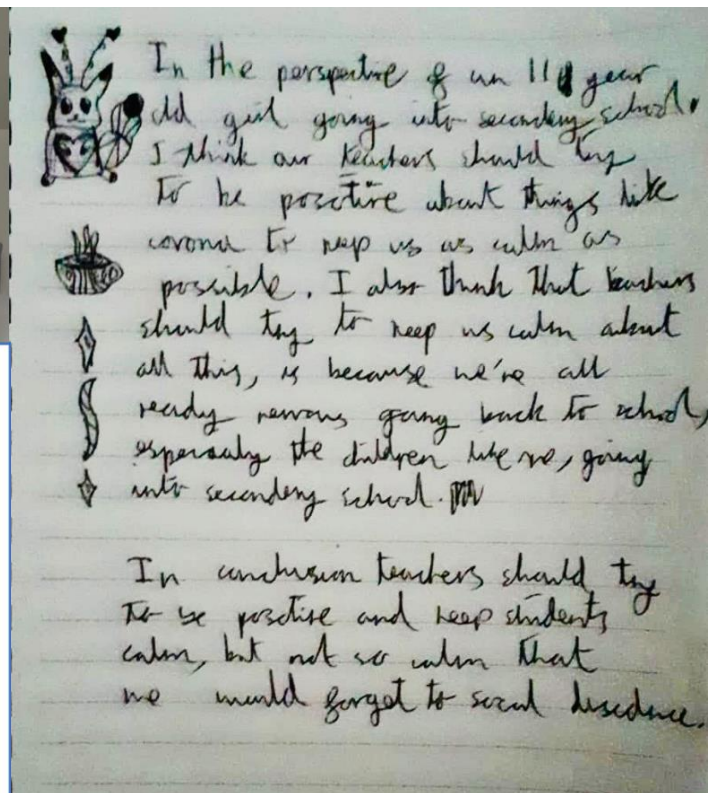 In the perspective of an 11 year
old girl going into secondary school.
I think our teachers should try
to be positive about things like
corona to keep us as calm as
possible. I also think that teachers
should try to keep us calm about
all this, is because we're all
ready nervous going back to school,
especially the children like me, going
into secondary school.
In conclusion teachers should try
to be positive and keep students
calm, but not so calm that
we would forget to social